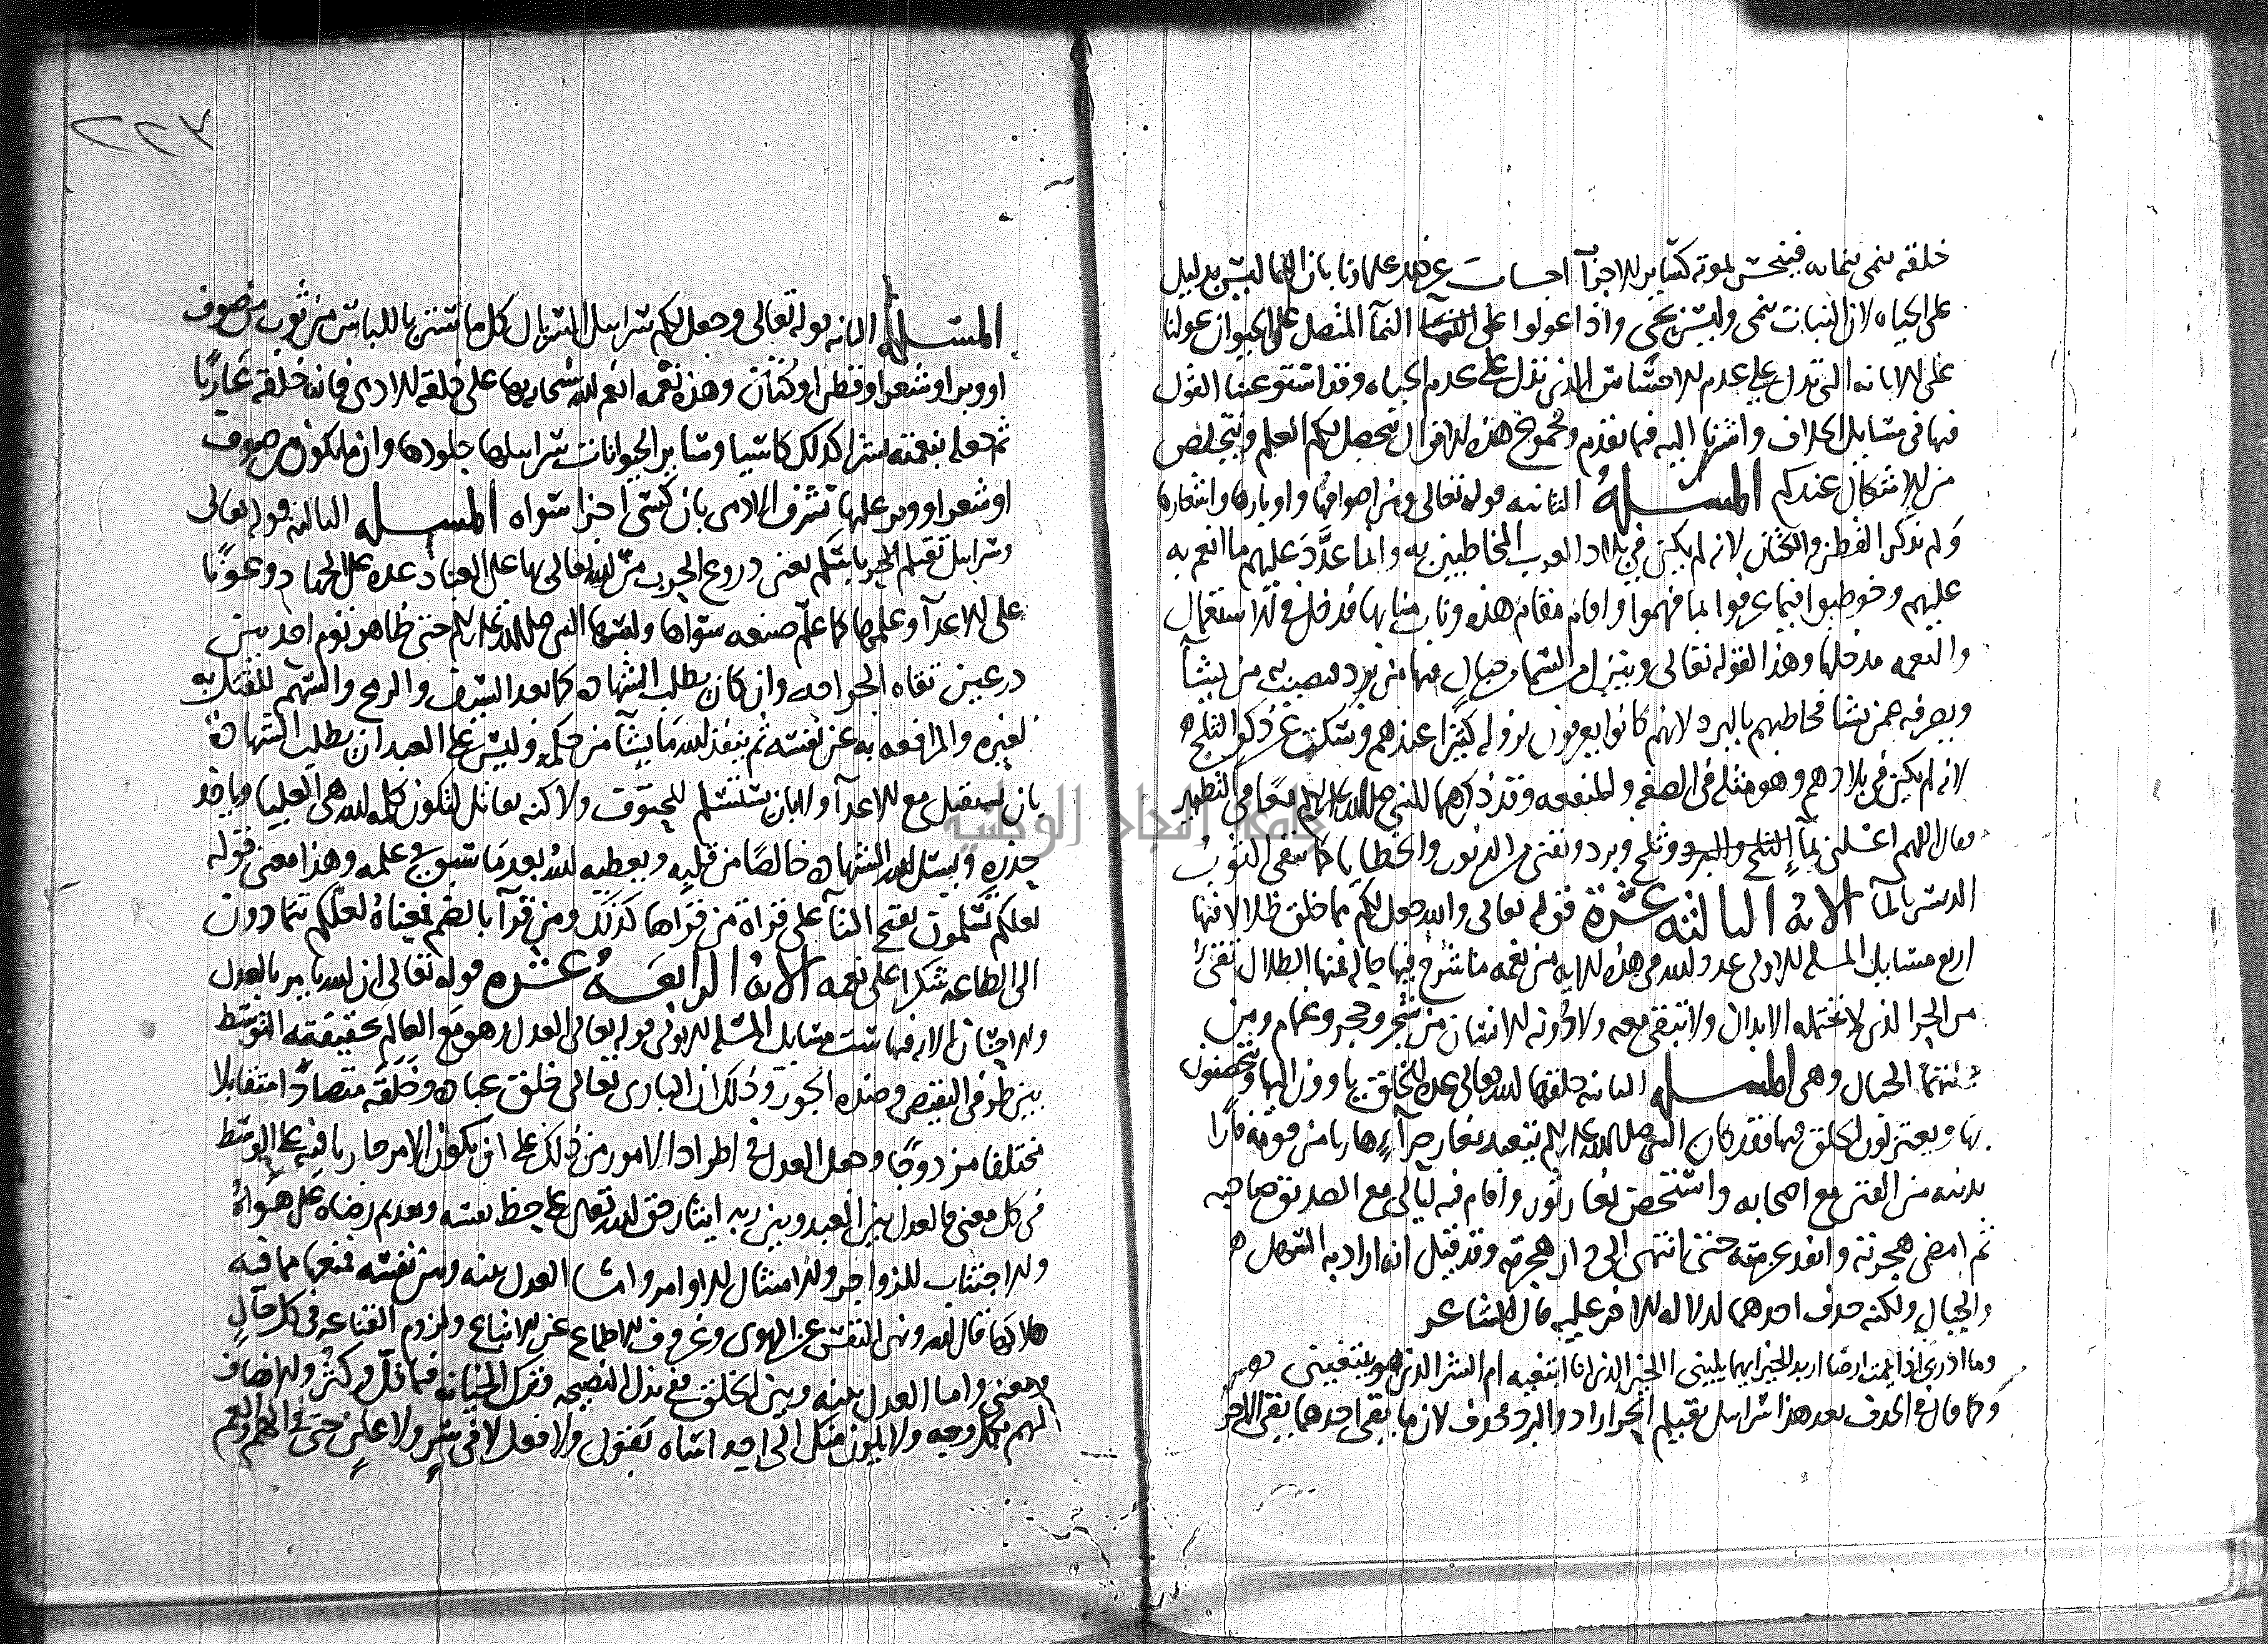 خلقه ينمى بنمائه فينجس بموته كسائر الاجزآ اجاب عن هذا علماونا بان النما ليس بدليل
على الحياه لان النبات ينمى وليس بحى واذا عولوا على النمآ المتصل على الحيوان عولنا
على الابانه التى تدل على عدم الاحساس الذى تدل على عدم الحياه وقد استوعبنا القول
فيها فى مسايل الخلاف واشرنا اليه فيما تقدم ومجموع هذه الاقوال تحصل لكم العلم ويتخلص
من الاشكال عندكم المسلة الثانيه قوله تعالى ومن اصوافها واوبارها واشعارها
ولم يذكر القطن والكتان لانه لم يكن فى بلاد العرب المخاطبين به وانما عدد عليهم ما انعم به
عليهم وخوطبوا فيما عرفوا بما فهموا وما قام مقام هذه وناب منابها فدخل فى الاستعمال
والنعمه مدخلها وهذا كقوله تعالى وينزل من السما من جبال فيها من برد فيصيب به من يشآ
ويصرفه عمن يشا فخاطبهم بالبرد لانهم كانوا يعرفون نزوله كثيرا عندهم وسكت عن ذكر الثلج
لانه لم يكن فى بلادهم وهو مثله فى الصفه والمنفعه وقد ذكرهما النبى صلى الله عليه وسلم معا فى التطهير
فقال اللهم اغسلنى بمآ وثلج وبرد ونقنى من الذنوب والخطايا كما ينقى الثوب
الدنس بالمآ الايه الثالثه عشرة قوله تعالى والله جعل لكم مما خلق ظلالا فيها
اربع مسايل المسله الاولى عدد الله فى هذه الايه من نعمه ما شرح فيها حاله فمنها الظلال تقى
من الحر الذى لا تحتمله الابدان ولا تبقى معه ولا دونه للانسان من شجر وحجر وغمام ومن
جملتها الجبال وهى المسله الثانيه خلقها الله تعالى عده للخلق ياوون اليها ويتحصنون
بها ويعتزلون الخلق فيها فقد كان النبى صلى الله عليه وسلم يتعبد بغار حرآء هاربا من قومه فارا
بدينه من الفتن مع اصحابه واستحصن بغار ثور واقام فيه ليالى مع الصديق صاحبه
ثم امضى هجرته وانفذ عزمته حتى انتهى الى دار هجرته وقد قيل انه اراد به السهل
والجبال ولكنه حذف احدهما لدلاله الاخر عليه قال الشاعر
وما ادرى اذا يممت ارضا اريد الخير ايهما يلينى االخير الذى انا ابتغيه ام الشر الذى هو يبتغينى
وكما قال فى الحرف بعد هذا سرابيل تقيكم الحر اراد والبرد فحذف لان ما يقى احدهما يقى الاخر
٢٢٣
المسله الثانيه قوله تعالى وجعل لكم سرابيل السربال كل ما تستر باللباس من ثوب من صوف
او وبر او شعر او قطن او كتان وهذه نعمه انعم الله سبحانه بها على خلقه للادمى فانه خلقه عاريا
ثم جعله بنعمته بشرا كذلك كاسيا وساير الحيوانات سرابيلها جلودها وان ما يكون من صوف
او شعر او وبر عليها تشرف الادمى بان كسى اجزا سواه المسله الثالثه قوله تعالى
وسرابيل تقيكم باسكم يعنى دروع الحرب من الله تعالى بها على العباد عده على الجهاد وعونا
على الاعدآ وعلمها كما علم صنعه سواها ولبسها النبى صلى الله عليه وسلم حتى ظاهر يوم احد بين
درعين تقاه الجراحه وان كان يطلب الشهاده كما يعد السيف والرمح والسهم للقتل به
لغيره والمدافعه به عن نفسه ثم ينفذ الله ما يشآ من حكمه وليس على العبد ان يطلب الشهاده
بان يستقبل مع الاعدآ ولا بان يستسلم للحتوف ولاكنه يقاتل لتكون كلمه الله هى العليا وياخذ
حذره ويسئل الله الشهاده خالصا من قلبه ويعطيه الله بعد ما سبق فى علمه وهذا معنى قوله
لعلكم تسلمون بفتح التآ على قراة من قراها كذلك ومن قرآ بالضم فمعناه لعلكم تنقادون
الى الطاعه شكرا على نعمه الايه الرابعه عشره قوله تعالى ان الله يامر بالعدل
والاحسان الايه فيها ست مسايل المسله الاولى قوله تعالى العدل وهو مع العالم حقيقته التوسط
بين طرفى النقيض وضده الجور وذلك ان البارى تعالى خلق عباده وخلقه متضادا متقابلا
مختلفا مزدوجا وجعل العدل فى اطراد الامور من ذلك على ان يكون الامر جاريا فيه على الوسط
فى كل معنى فالعدل بين العبد وبين ربه ايثار حق الله تعالى على حظ نفسه وتقديم رضاه على هواه
والاجتناب للزواجر والامتثال للاوامر واما العدل بينه وبين نفسه فمنعها مما فيه
هلاكها قال الله ونهى النفس عن الهوى وعزوف الاطماع عن الاتباع ولزوم القناعه فى كل حال
ومعنى واما العدل بينه وبين الخلق ففى بذل النصيحه وترك الخيانه فيما قل وكثر والانصاف
لهم بكل وجه ولا يكون منك الى احد اساه بقول ولا فعل لا فى سر ولا علن حتى فى الهم والعزم